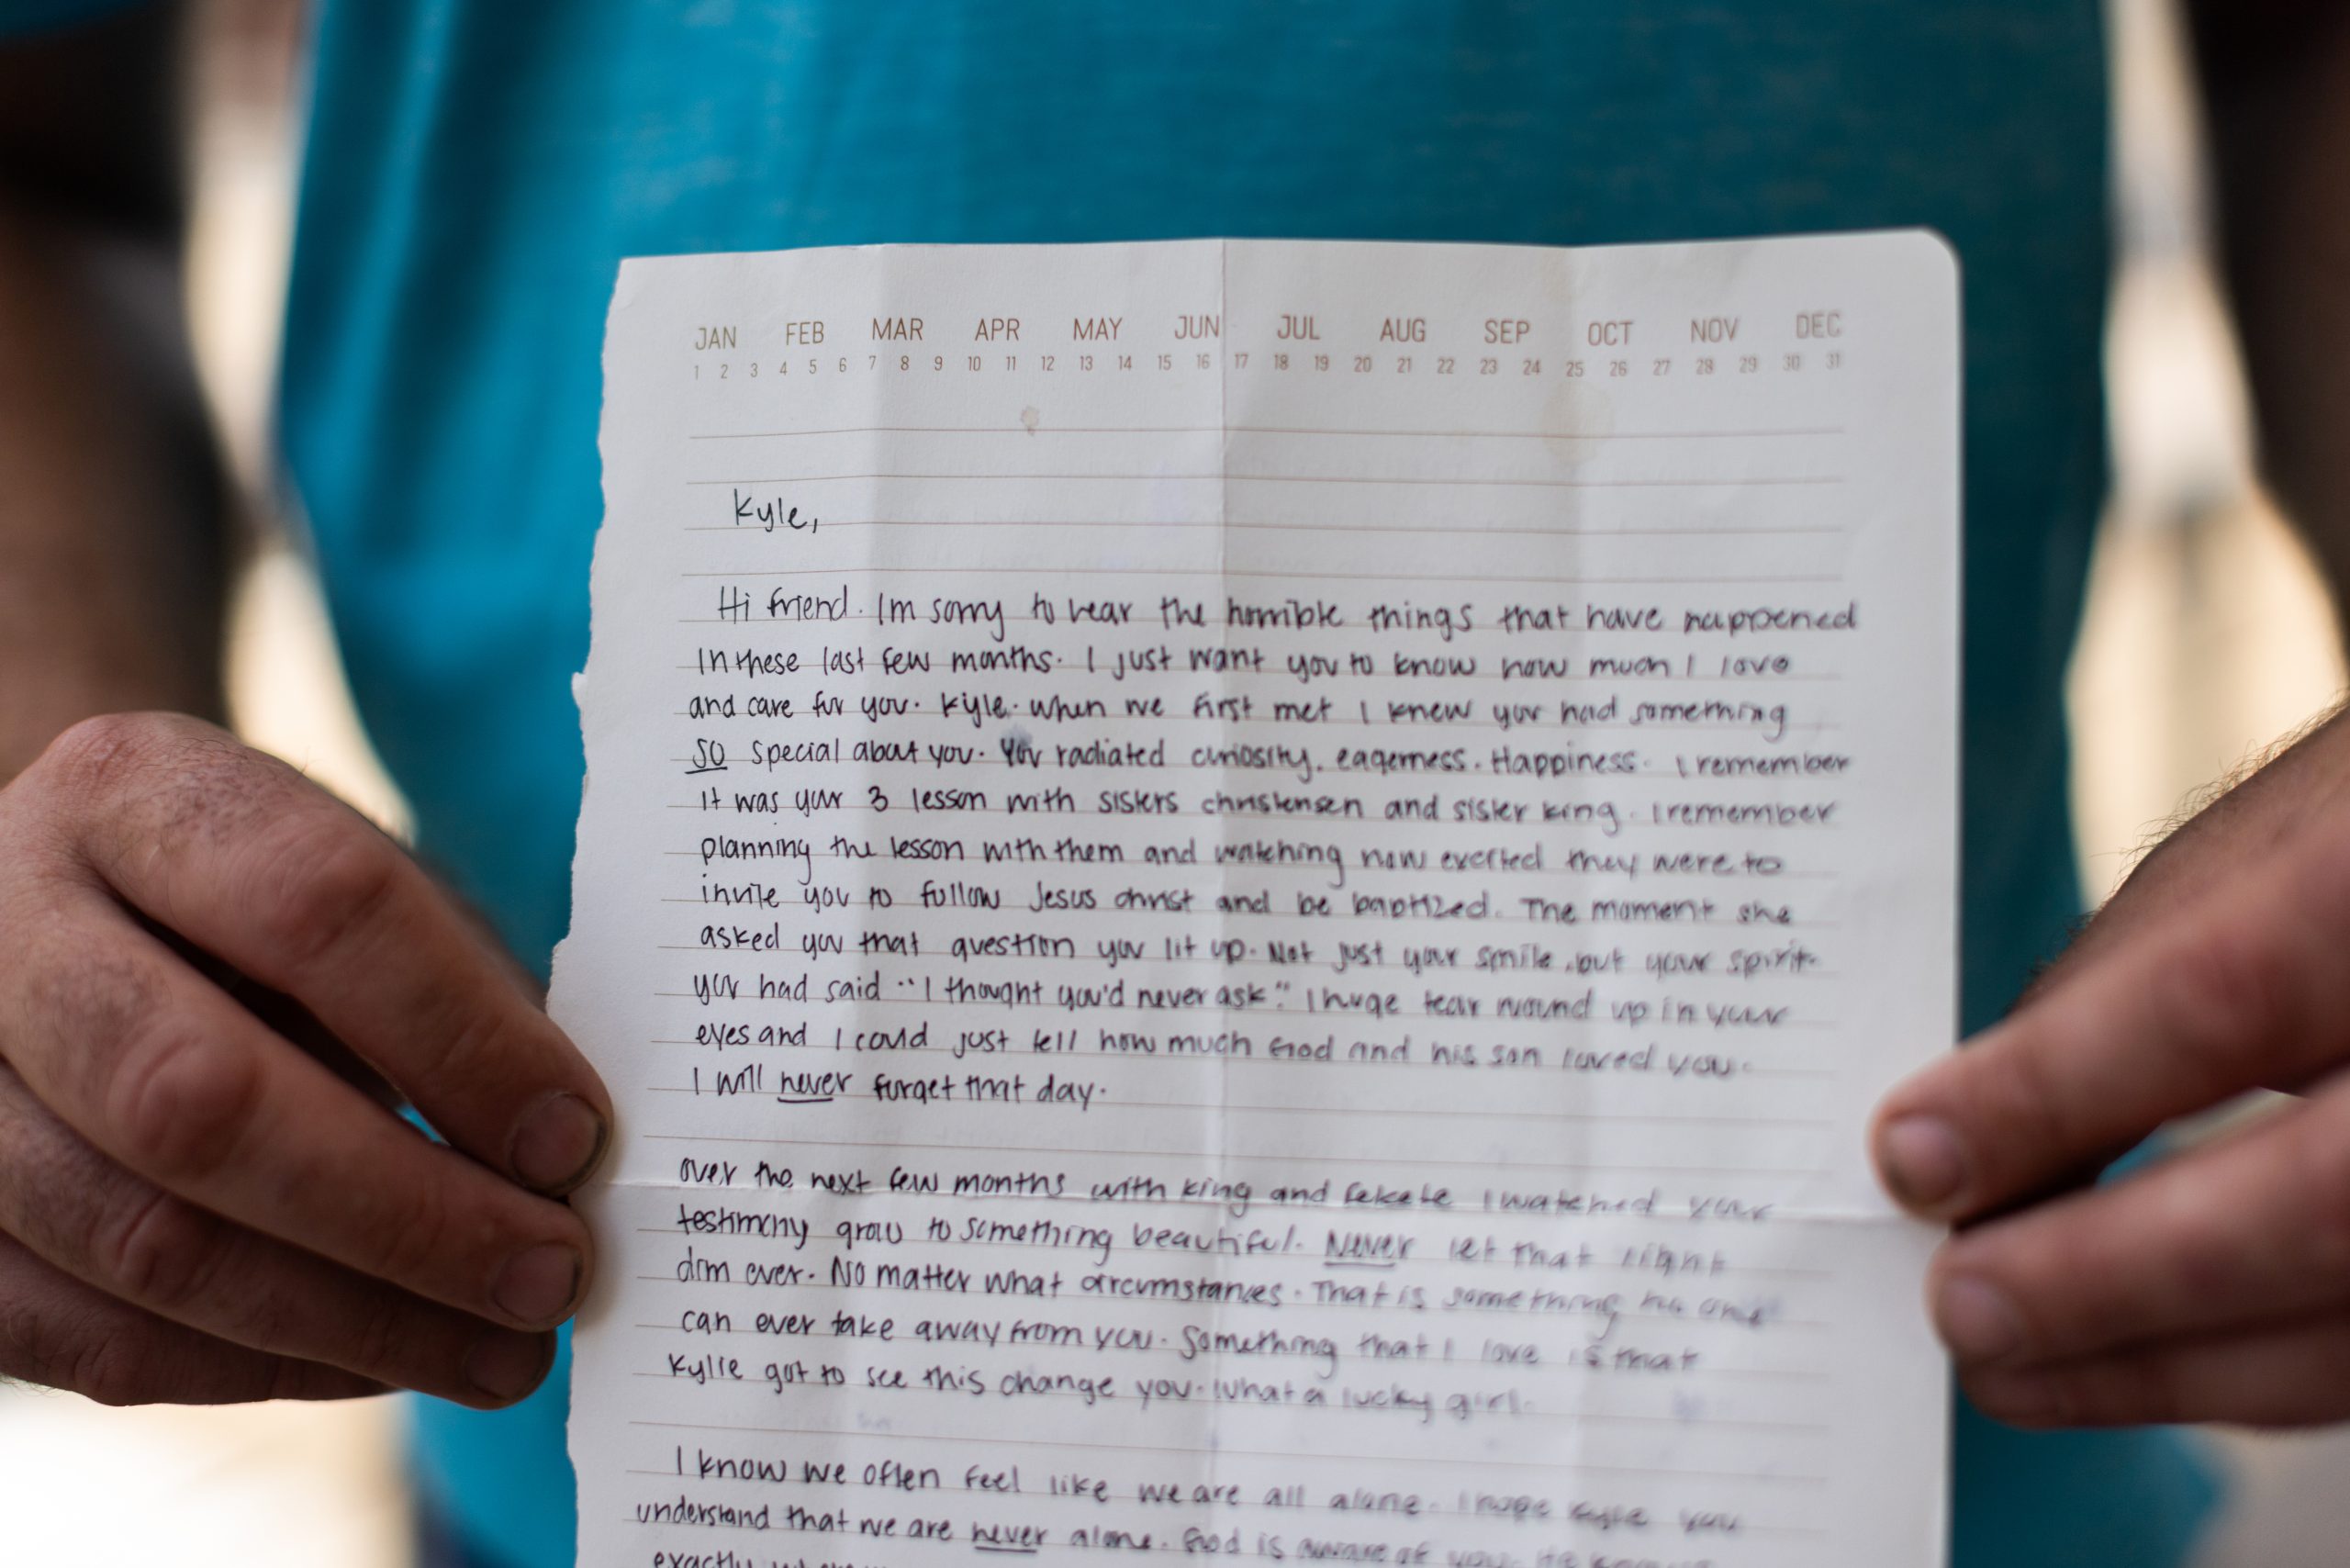 JAN FEB MAR APR MAY JUN JUL AUG SEP OCT NOV DEC
1 2 3 4 5 6 7 8 9 10 11 12 13 14 15 16 17 18 19 20 21 22 23 24 25 26 27 28 29 30 31
Kyle,
Hi friend. Im sorry to hear the horrible things that have happened
in these last few months. I just want you to know how much I love
and care for you. Kyle. when we first met I knew you had something
SO special about you. You radiated curiosity, eagerness. Happiness. I remember
it was your 3 lesson with sisters christensen and sister king. I remember
planning the lesson with them and watching how excited they were to
invite you to follow Jesus christ and be baptized. The moment she
asked you that question you lit up. Not just your smile, but your spirit.
you had said "I thought you'd never ask." I huge tear wound up in your
eyes and I could just tell how much God and his son loved you.
I will never forget that day.
over the next few months with king and Fekete I watched your
testimony grow to something beautiful. Never let that light
dim ever. No matter what circumstances. That is something no one
can ever take away from you. Something that I love is that
Kylie got to see this change you. What a lucky girl.
I know we often feel like we are all alone. I hope kyle you
understand that we are never alone. God is aware of you. He knows
exactly